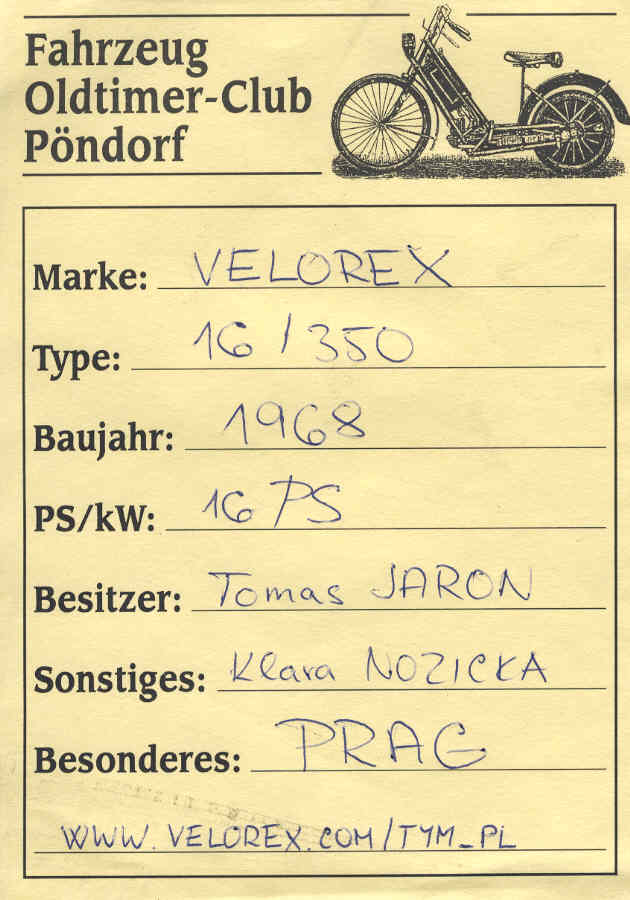 Fahrzeug
Oldtimer-Club
Pöndorf
Marke: VELOREX
Type: 16/350
Baujahr: 1968
PS/kW: 16 PS
Besitzer: Tomas JARON
Sonstiges: Klara NOZICKA
Besonderes: PRAG
WWW.VELOREX.COM/TYM_PL